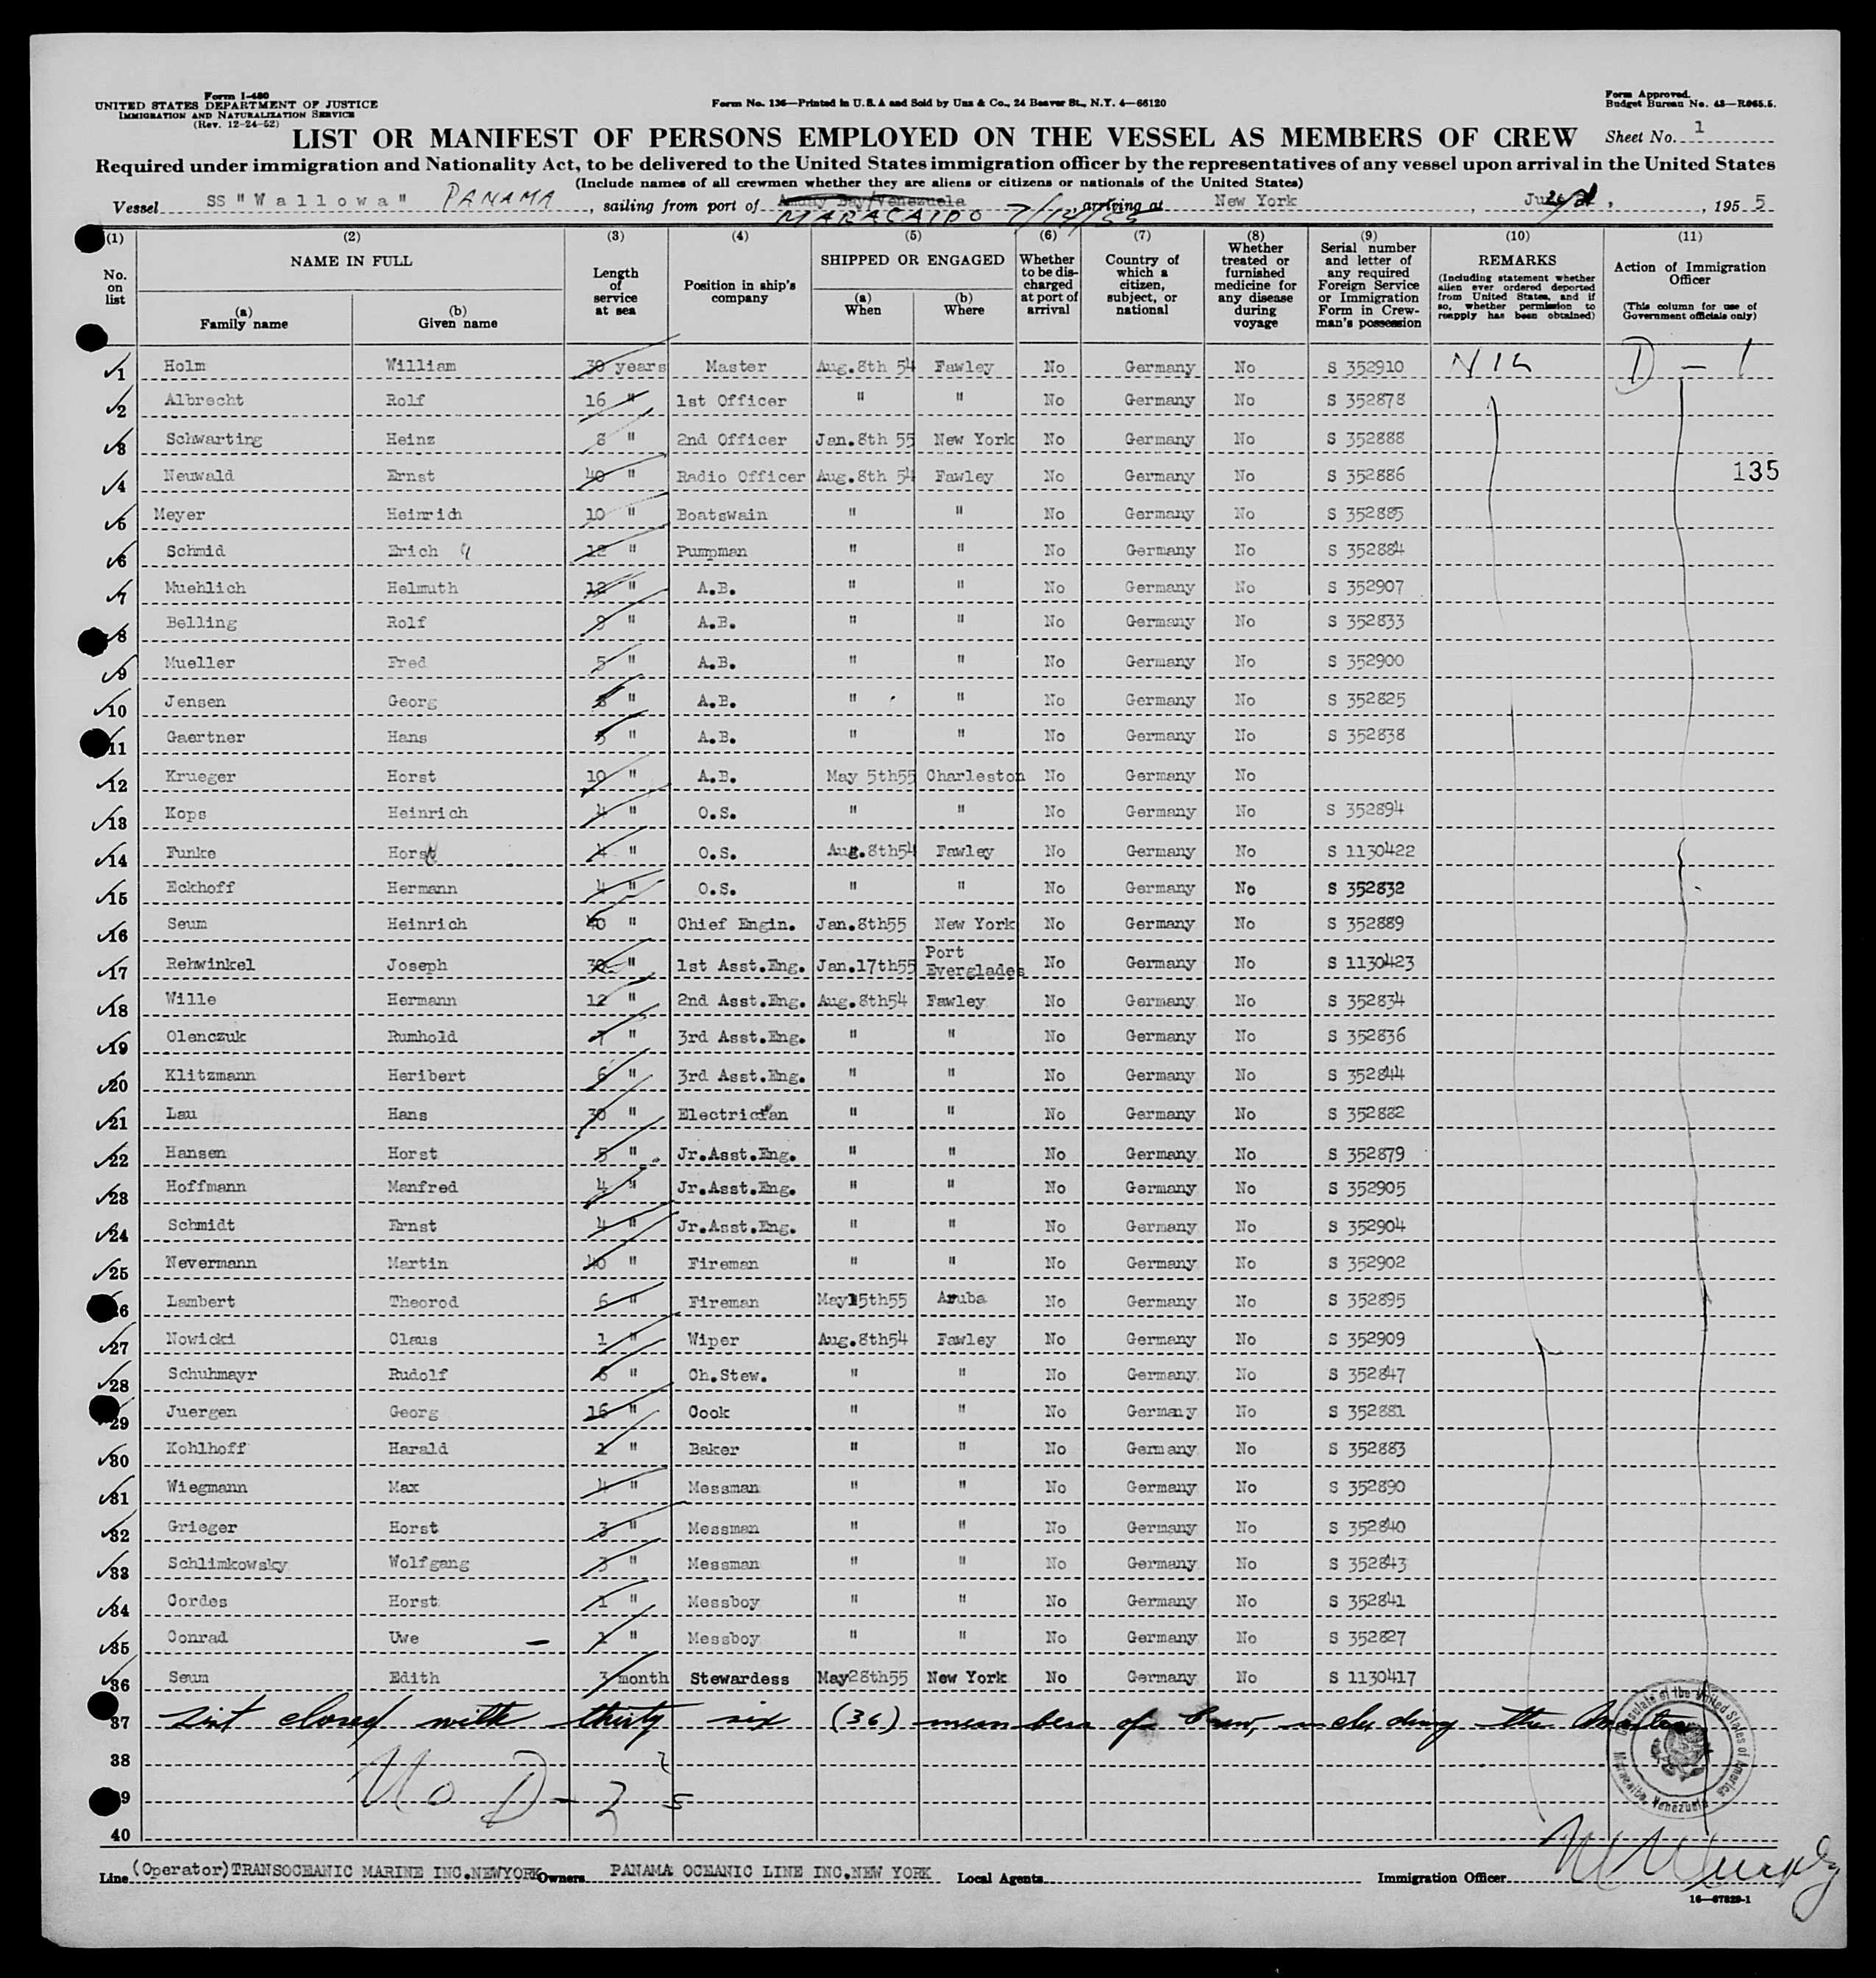 Form I-480
UNITED STATES DEPARTMENT OF JUSTICE
IMMIGRATION AND NATURALIZATION SERVICE
(Rev. 12-24-52)
Form No. 136—Printed in U.S.A and Sold by Unz & Co., 24 Beaver St., N.Y. 4—66120
Form Approved.
Budget Bureau No. 43—R065.5.
LIST OR MANIFEST OF PERSONS EMPLOYED ON THE VESSEL AS MEMBERS OF CREW
Sheet No. 1
Required under immigration and Nationality Act, to be delivered to the United States immigration officer by the representatives of any vessel upon arrival in the United States
(Include names of all crewmen whether they are aliens or citizens or nationals of the United States)
Vessel SS "Wallowa" PANAMA, sailing from port of Amuay Bay/Venezuela MARACAIBO 7/14/55, arriving at New York, 1955
(1) (2) (3) (4) (5) (6) (7) (8) (9) (10) (11)
No. on list
NAME IN FULL
(a) Family name
(b) Given name
Length of service at sea
Position in ship's company
SHIPPED OR ENGAGED
(a) When
(b) Where
Whether to be discharged at port of arrival
Country of which a citizen, subject, or national
Whether treated or furnished medicine for any disease during voyage
Serial number and letter of any required Foreign Service or Immigration Form in Crewman's possession
REMARKS
(Including statement whether alien ever ordered deported from United States, and if so, whether permission to reapply has been obtained)
Action of Immigration Officer
(This column for use of Government officials only)
1 Holm William 30 years Master Aug.8th 54 Fawley No Germany No S 352910 D - 1
2 Albrecht Rolf 16 " 1st Officer " " No Germany No S 352878
3 Schwarting Heinz 8 " 2nd Officer Jan.8th 55 New York No Germany No S 352888
4 Neuwald Ernst 40 " Radio Officer Aug.8th 54 Fawley No Germany No S 352886 135
5 Meyer Heinrich 10 " Boatswain " " No Germany No S 352885
6 Schmid Erich 12 " Pumpman " " No Germany No S 352884
7 Muehlich Helmuth 12 " A.B. " " No Germany No S 352907
8 Belling Rolf 9 " A.B. " " No Germany No S 352833
9 Mueller Fred 5 " A.B. " " No Germany No S 352900
10 Jensen Georg " A.B. " " No Germany No S 352825
11 Gaertner Hans 5 " A.B. " " No Germany No S 352838
12 Krueger Horst 10 " A.B. May 5th55 Charleston No Germany No
13 Kops Heinrich 4 " O.S. " " No Germany No S 352894
14 Funke Horst 4 " O.S. Aug.8th54 Fawley No Germany No S 1130422
15 Eckhoff Hermann 4 " O.S. " " No Germany No S 352832
16 Seum Heinrich 40 " Chief Engin. Jan.8th55 New York No Germany No S 352889
17 Rehwinkel Joseph 30 " 1st Asst.Eng. Jan.17th55 Port Everglades No Germany No S 1130423
18 Wille Hermann 12 " 2nd Asst.Eng. Aug.8th54 Fawley No Germany No S 352834
19 Olenczuk Rumhold 7 " 3rd Asst.Eng. " " No Germany No S 352836
20 Klitzmann Heribert 6 " 3rd Asst.Eng. " " No Germany No S 352844
21 Lau Hans 30 " Electrician " " No Germany No S 352882
22 Hansen Horst 5 " Jr.Asst.Eng. " " No Germany No S 352879
23 Hoffmann Manfred 4 " Jr.Asst.Eng. " " No Germany No S 352905
24 Schmidt Ernst 4 " Jr.Asst.Eng. " " No Germany No S 352904
25 Nevermann Martin 40 " Fireman " " No Germany No S 352902
26 Lambert Theorod 6 " Fireman May15th55 Aruba No Germany No S 352895
27 Nowicki Claus 1 " Wiper Aug.8th54 Fawley No Germany No S 352909
28 Schuhmayr Rudolf 6 " Ch.Stew. " " No Germany No S 352847
29 Juergen Georg 16 " Cook " " No Germany No S 352881
30 Kohlhoff Harald " Baker " " No Germany No S 352883
31 Wiegmann Max 4 " Messman " " No Germany No S 352890
32 Grieger Horst 3 " Messman " " No Germany No S 352840
33 Schlimkowsky Wolfgang 3 " Messman " " No Germany No S 352843
34 Cordes Horst 1 " Messboy " " No Germany No S 352841
35 Conrad Uwe 1 " Messboy " " No Germany No S 352827
36 Seum Edith 3 month Stewardess May28th55 New York No Germany No S 1130417
37 List closed with thirty six (36) members of Crew, including the Master
38
39 No D-
40
Consulate of the United States of America
Maracaibo, Venezuela
Line (Operator) TRANSOCEANIC MARINE INC.NEWYORK Owners PANAMA OCEANIC LINE INC.NEW YORK Local Agents Immigration Officer
16—67829-1